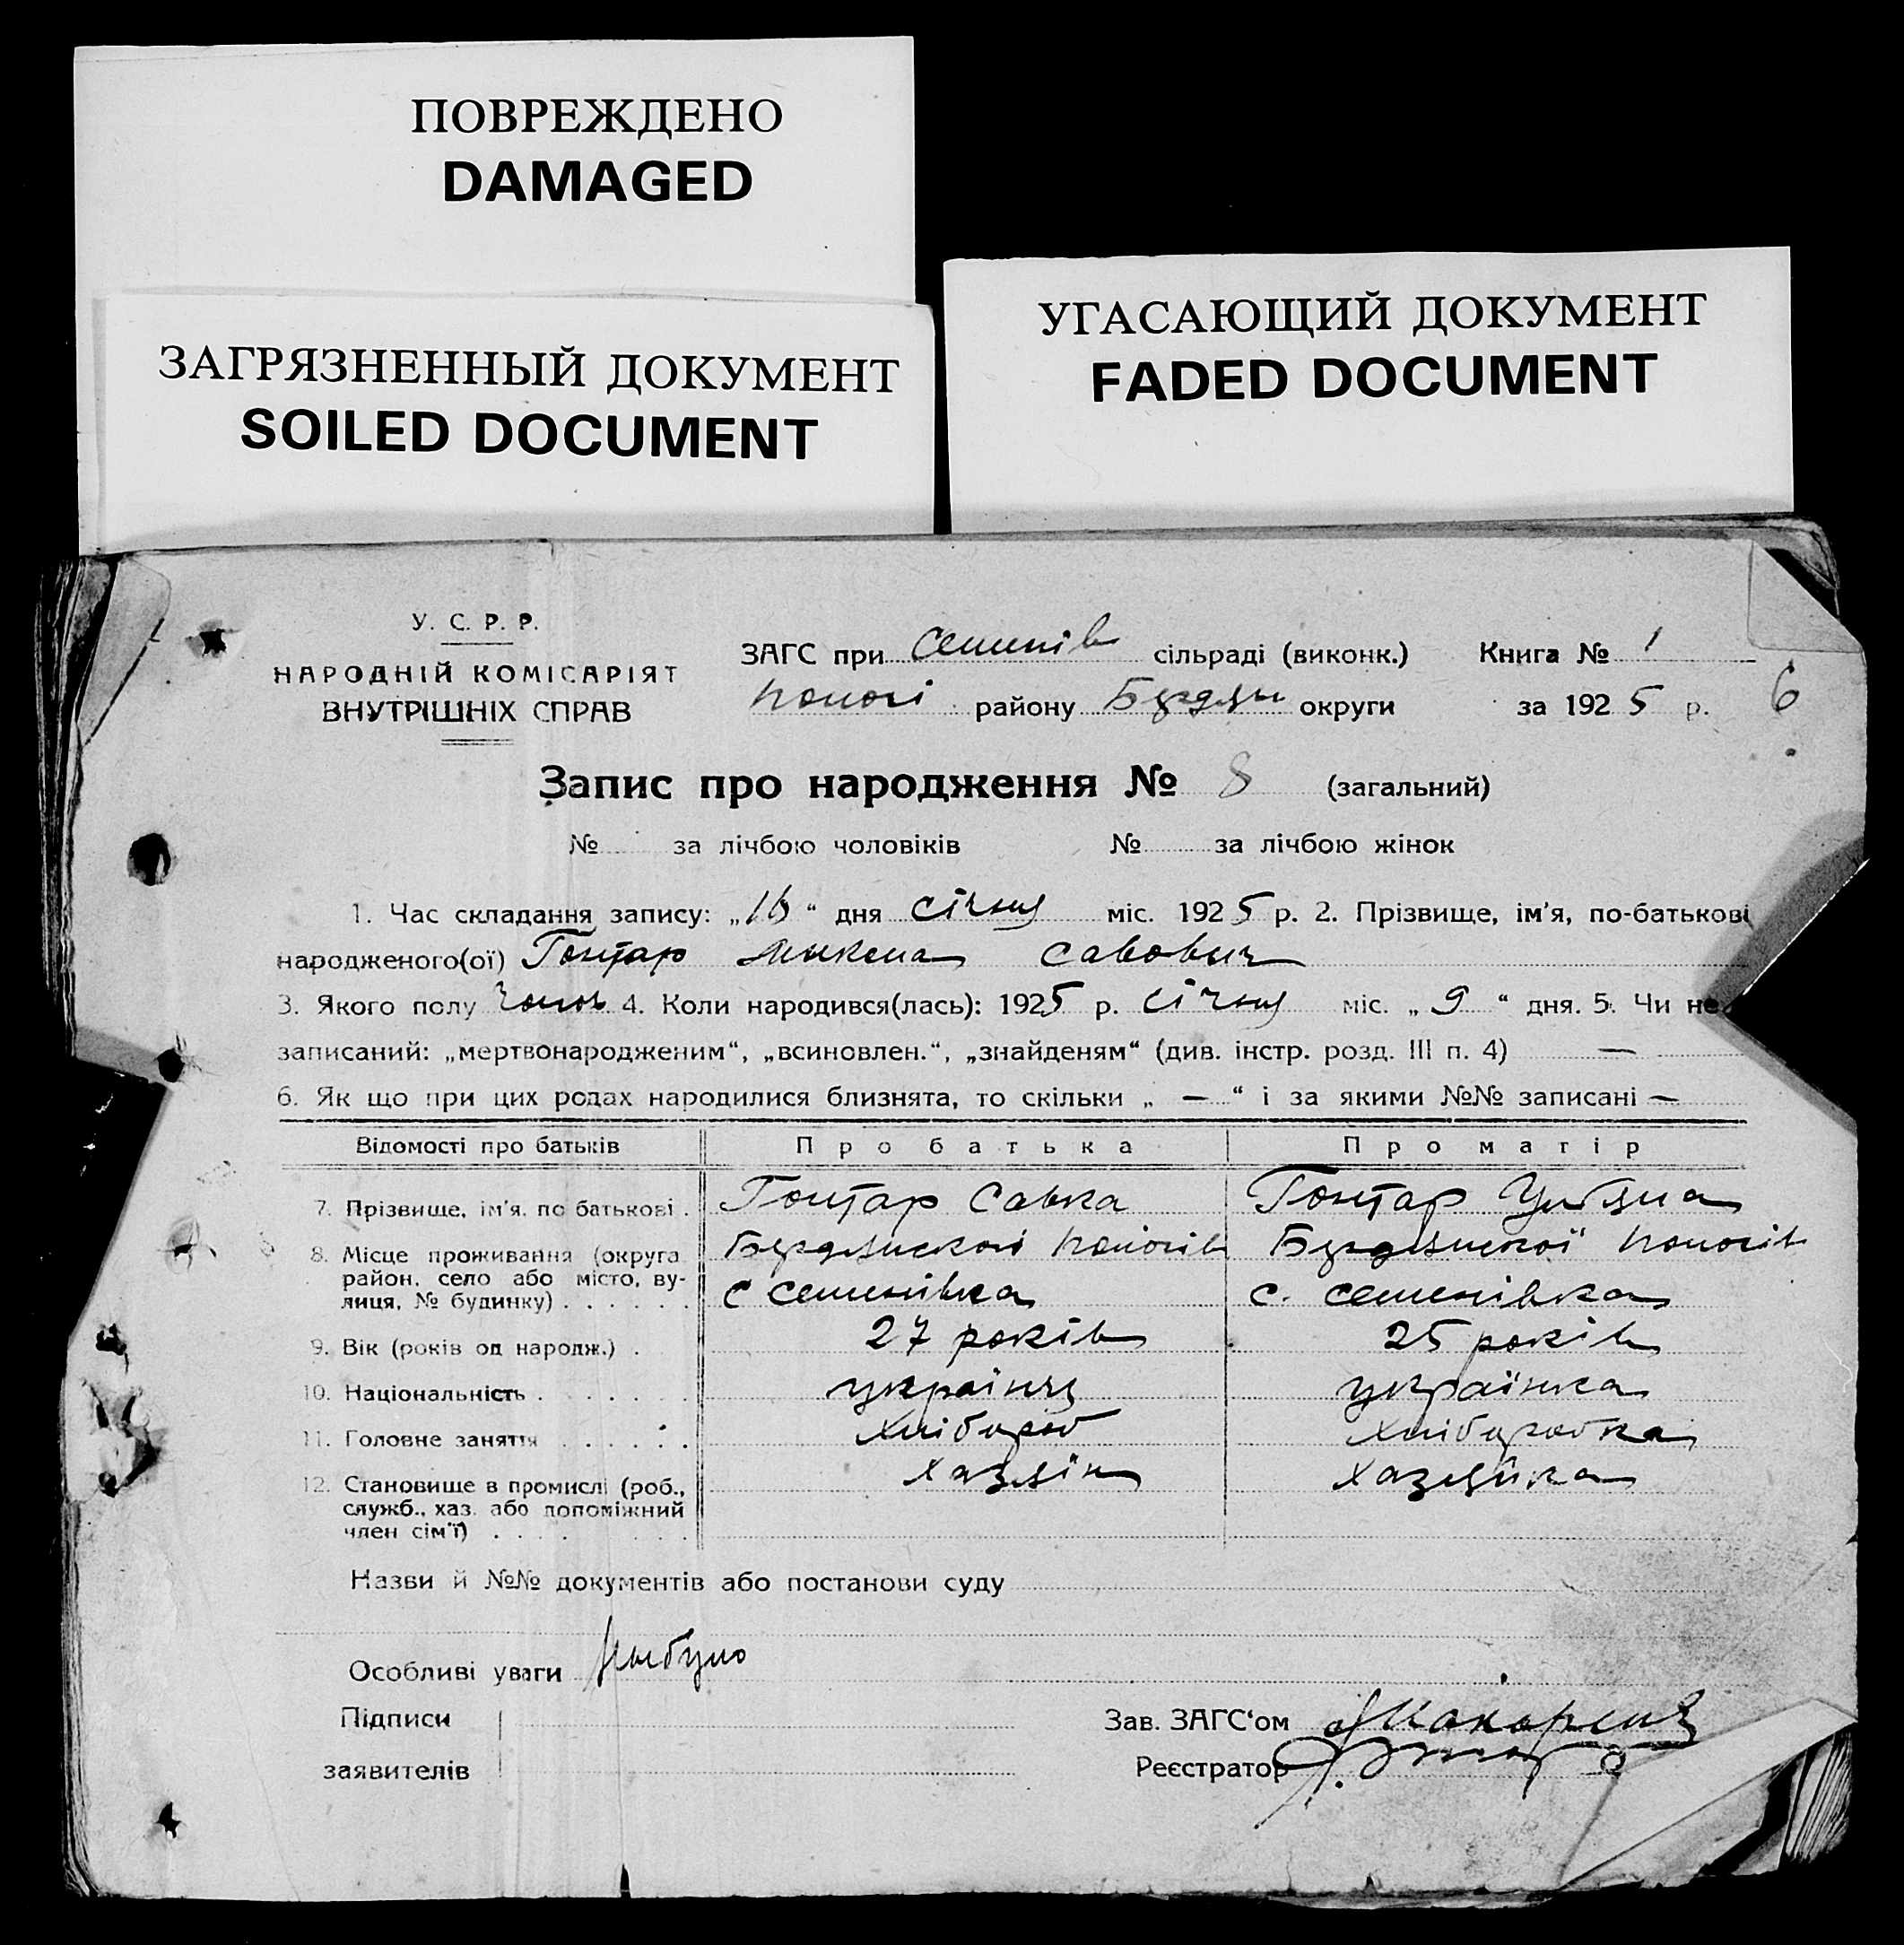 ПОВРЕЖДЕНО
DAMAGED
ЗАГРЯЗНЕННЫЙ ДОКУМЕНТ
SOILED DOCUMENT
УГАСАЮЩИЙ ДОКУМЕНТ
FADED DOCUMENT
У. С. Р. Р.
НАРОДНІЙ КОМІСАРІЯТ
ВНУТРІШНІХ СПРАВ
ЗАГС при Семенів сільраді (виконк.) Книга № 1
району округи за 1925 р. 6
Запис про народження № 8 (загальний)
№ за лічбою чоловіків № за лічбою жінок
1. Час складання запису: „16“ дня січня міс. 1925 р. 2. Прізвище, ім'я, по-батькові
народженого(ої) Гонтар Микола Савович
3. Якого полу Чолов 4. Коли народився(лась): 1925 р. січня міс. „9“ дня. 5. Чи не
записаний: „мертвонародженим“, „всиновлен.“, „знайденям“ (див. інстр. розд. III п. 4) —
6. Як що при цих родах народилися близнята, то скільки „ — “ і за якими №№ записані —
Відомості про батьків Про батька Про матір
7. Прізвище, ім'я, по батькові . Гонтар Савка Гонтар
8. Місце проживання (округа
район, село або місто, ву-
лиця, № будинку) . . . . . . с Семенівка с. Семенівка
9. Вік (років од народж.) . 27 років 25 років
10. Національність . . . . . українец українка
11. Головне заняття . . . . . . хлібороб хліборобка
12. Становище в промислі (роб.,
служб., хаз. або допоміжний
член сім'ї) . . . . . . . хазяін хазяйка
Назви й №№ документів або постанови суду
Особливі уваги
Підписи
заявителів
Зав. ЗАГС‘ом
Реєстратор